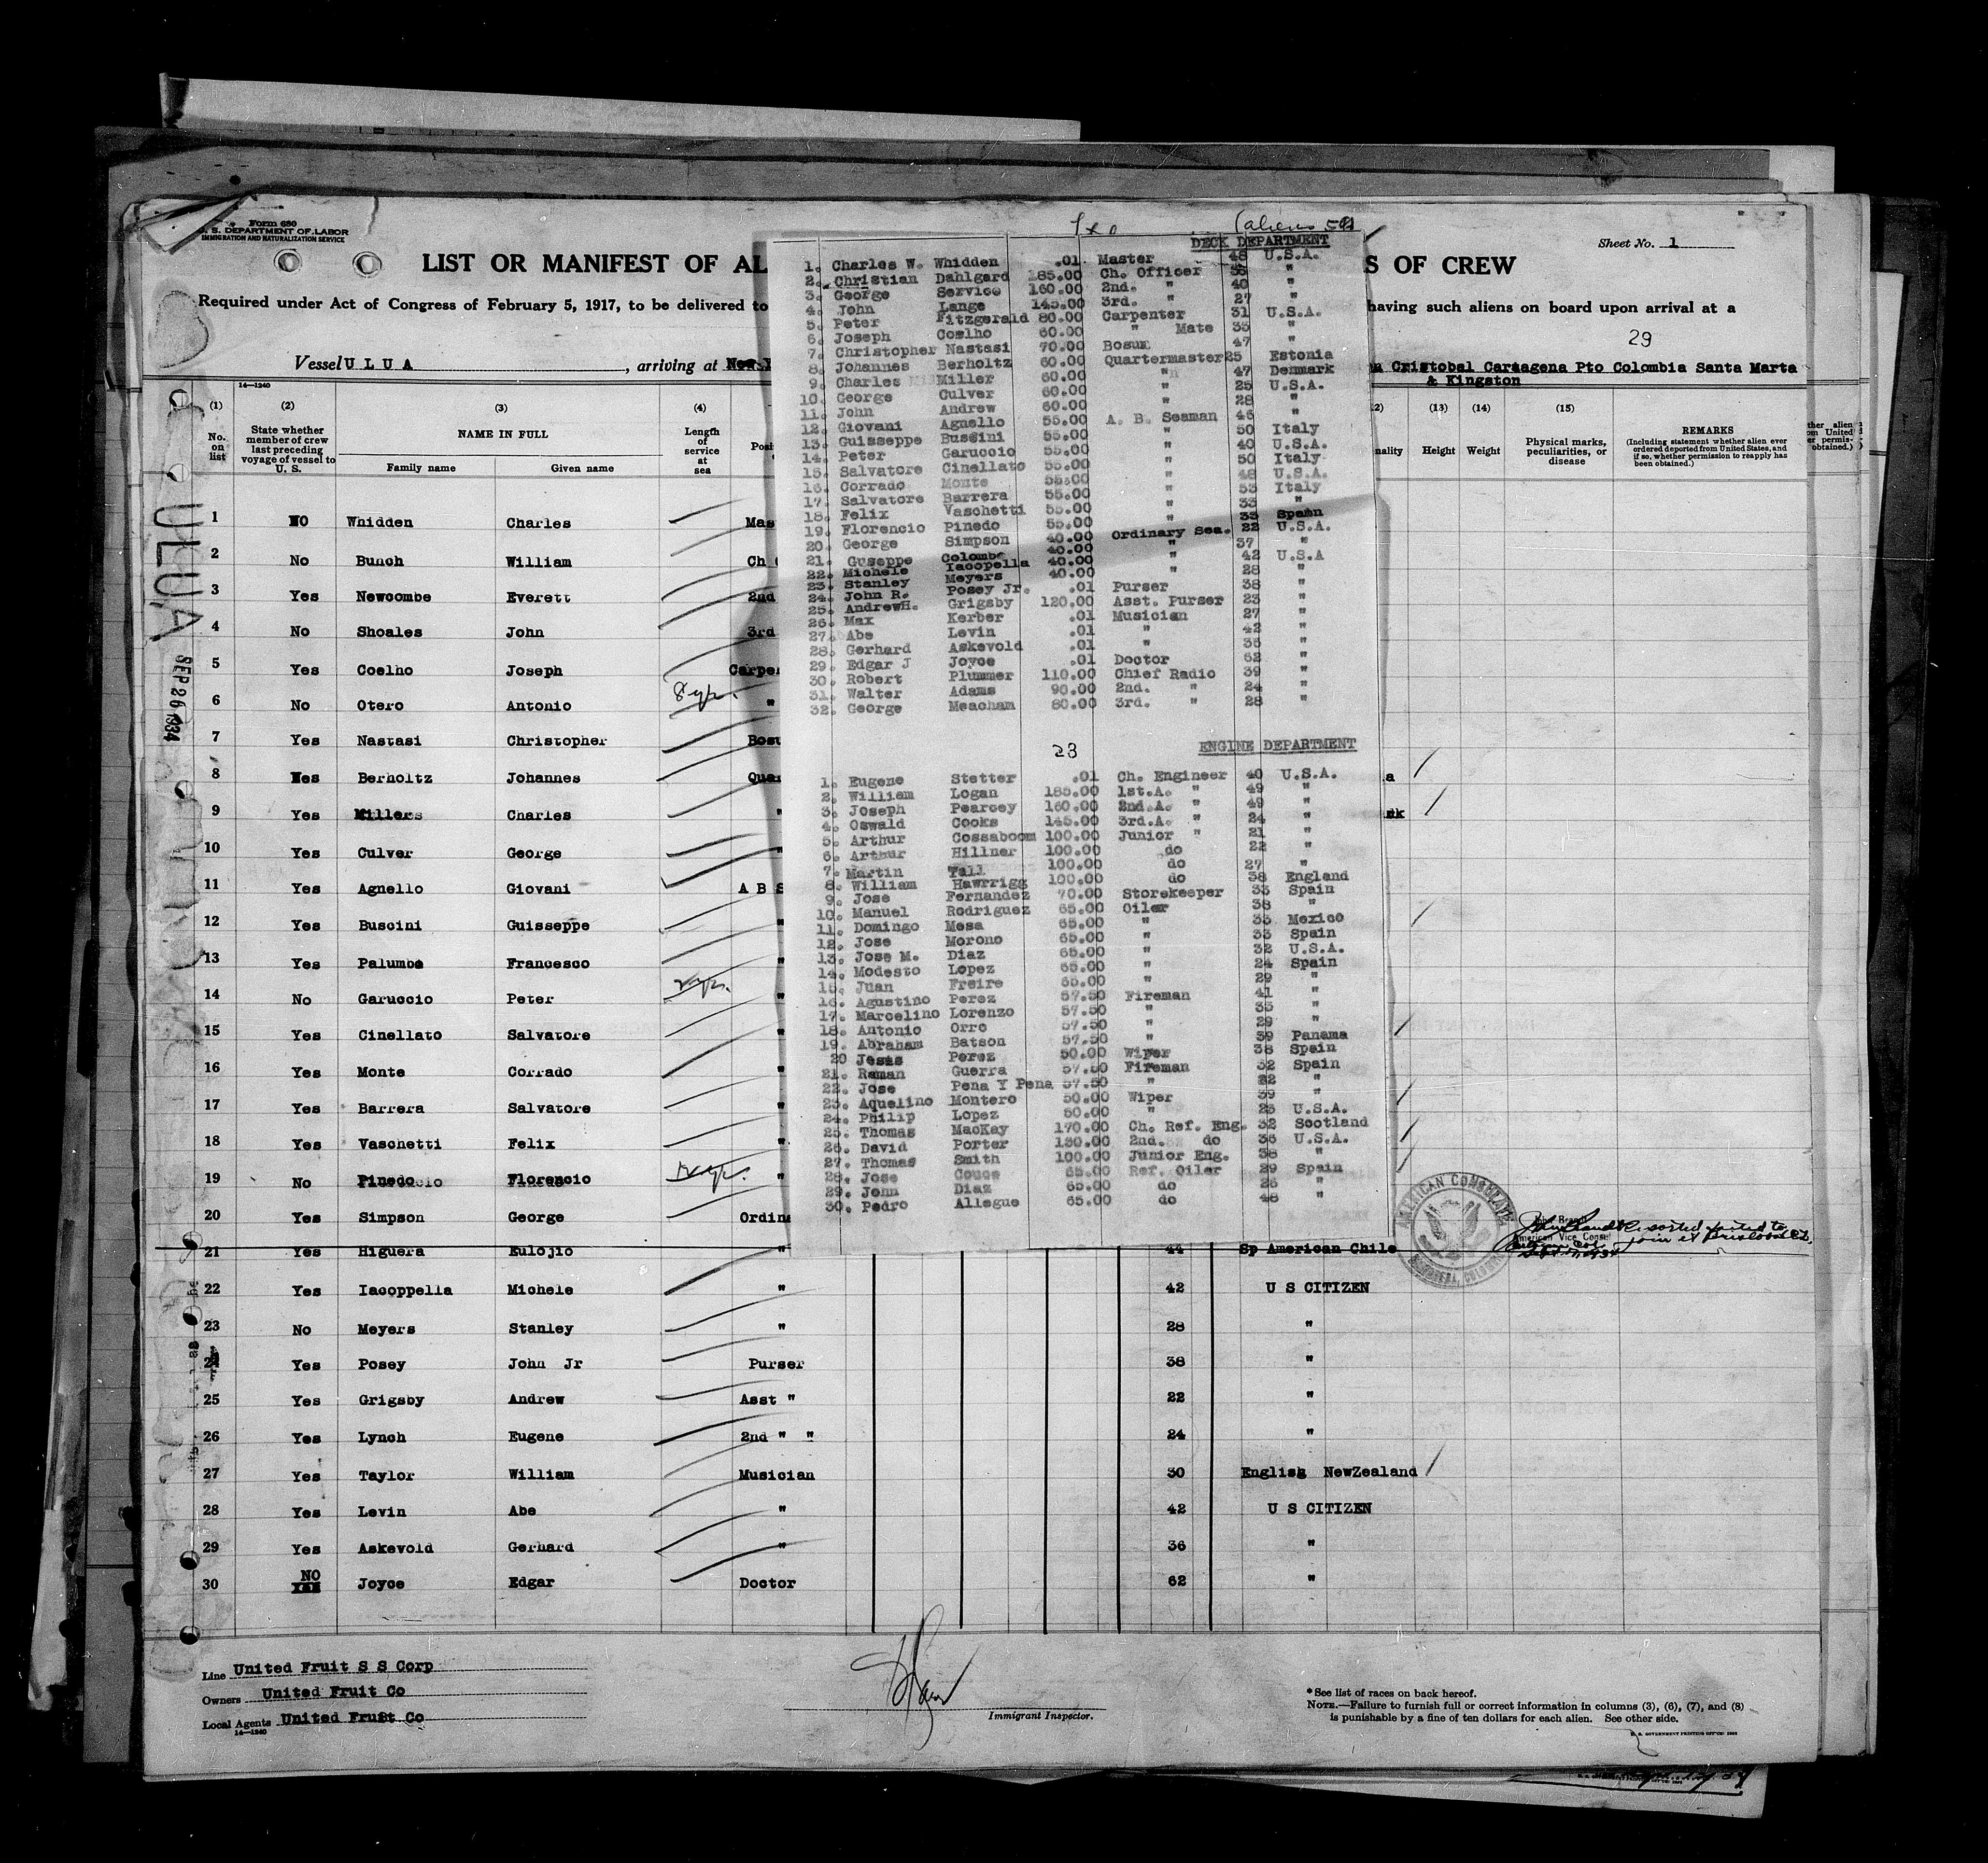 Form 680
U. S. DEPARTMENT OF LABOR
IMMIGRATION AND NATURALIZATION SERVICE
Sheet No. 1
LIST OR MANIFEST OF AL
S OF CREW
Required under Act of Congress of February 5, 1917, to be delivered to
having such aliens on board upon arrival at a
29
Vessel U L U A, arriving at
Cristobal Cartagena Pto Colombia Santa Marta
& Kingston
14—1240
(1) (2) (3) (4) (13) (14) (15)
No. on list
State whether member of crew last preceding voyage of vessel to U. S.
NAME IN FULL
Family name Given name
Length of service at sea
Height Weight
Physical marks, peculiarities, or disease
REMARKS
(Including statement whether alien ever ordered deported from United States, and if so, whether permission to reapply has been obtained.)
ULUA
SEP 26 1934
1 NO Whidden Charles Mas
2 No Bunch William Ch
3 Yes Newcombe Everett 2nd
4 No Shoales John 3rd
5 Yes Coelho Joseph Carpe
6 No Otero Antonio 8 yrs. "
7 Yes Nastasi Christopher Bosu
8 Yes Berholtz Johannes Qua a
9 Yes Millers Charles " rk
10 Yes Culver George "
11 Yes Agnello Giovani A B S
12 Yes Buscini Guisseppe "
13 Yes Palumbo Francesco "
14 No Garuccio Peter "
15 Yes Cinellato Salvatore "
16 Yes Monte Corrado "
17 Yes Barrera Salvatore "
18 Yes Vaschetti Felix "
19 No Pinedo Florencio "
20 Yes Simpson George Ordin
21 Yes Higuera Eulojio " 44 Sp American Chile
22 Yes Iacoppella Michele " 42 U S CITIZEN
23 No Meyers Stanley " 28 "
24 Yes Posey John Jr Purser 38 "
25 Yes Grigsby Andrew Asst " 22 "
26 Yes Lynch Eugene 2nd " " 24 "
27 Yes Taylor William Musician 30 English NewZealand
28 Yes Levin Abe " 42 U S CITIZEN
29 Yes Askevold Gerhard " 36 "
30 NO Joyce Edgar Doctor 62 "
AMERICAN CONSULATE
American Vice Consul
(aliens
DECK DEPARTMENT
1. Charles W. Whidden .01 Master 48 U.S.A.
2. Christian Dahlgard 185.00 Ch. Officer 38 "
3. George Service 160.00 2nd. " 40 "
4. John Lange 145.00 3rd. " 27 "
5. Peter Fitzgerald 80.00 Carpenter 31 U.S.A.
6. Joseph Coelho 60.00 " Mate 33 "
7. Christopher Nastasi 70.00 Bosun 47 "
8. Johannes Berholtz 60.00 Quartermaster 25 Estonia
9. Charles Miller 60.00 " 47 Denmark
10. George Culver 60.00 " 25 U.S.A.
11. John Andrew 60.00 " 28 "
12. Giovani Agnello 55.00 A. B. Seaman 46 "
13. Guisseppe Bussini 55.00 " 50 Italy
14. Peter Garuccio 55.00 " 40 U.S.A.
15. Salvatore Cinellato 55.00 " 50 Italy
16. Corrado Monte 55.00 " 48 U.S.A.
17. Salvatore Barrera 55.00 " 53 Italy
18. Felix Vaschetti 55.00 " 33 "
19. Florencio Pinedo 55.00 " 33 Spain
20. George Simpson 40.00 Ordinary Sea. 22 U.S.A.
21. Guseppe Colombo 40.00 " 37 "
22. Michele Iacopella 40.00 " 42 U.S.A
23. Stanley Meyers 40.00 " 28 "
24. John R. Posey Jr. .01 Purser 38 "
25. AndrewH. Grigsby 120.00 Asst. Purser 23 "
26. Max Kerber .01 Musician 27 "
27. Abe Levin .01 " 42 "
28. Gerhard Askevold .01 " 36 "
29. Edgar J Joyce .01 Doctor 62 "
30. Robert Plummer 110.00 Chief Radio 39 "
31. Walter Adams 90.00 2nd. " 24 "
32. George Meacham 80.00 3rd. " 28 "
23
ENGINE DEPARTMENT
1. Eugene Stetter .01 Ch. Engineer 40 U.S.A.
2. William Logan 185.00 1st.A. " 49 "
3. Joseph Pearcey 160.00 2nd.A. " 49 "
4. Oswald Cooks 145.00 3rd.A. " 24 "
5. Arthur Cossaboom 100.00 Junior " 21 "
6. Arthur Hillner 100.00 do 22 "
7. Martin Tall 100.00 do 27 "
8. William Hawrrigg 100.00 do 38 England
9. Jose Fernandez 70.00 Storekeeper 33 Spain
10. Manuel Rodriguez 65.00 Oiler 38 "
11. Domingo Mesa 65.00 " 33 Mexico
12. Jose Morono 65.00 " 33 Spain
13. Jose M. Diaz 65.00 " 32 U.S.A.
14. Modesto Lopez 65.00 " 24 Spain
15. Juan Freire 65.00 " 29 "
16. Agustino Perez 57.50 Fireman 41 "
17. Marcelino Lorenzo 57.50 " 33 "
18. Antonio Orro 57.50 " 29 "
19. Abraham Batson 57.50 " 39 Panama
20 Jesus Perez 50.00 Wiper 38 Spain
21. Raman Guerra 57.50 Fireman 32 Spain
22. Jose Pena Y Pena 57.50 " 32 "
23. Aquelino Montero 50.00 Wiper 39 "
24. Philip Lopez 50.00 " 23 U.S.A.
25. Thomas MacKay 170.00 Ch. Ref. Eng. 32 Scotland
26. David Porter 130.00 2nd. do 36 U.S.A.
27. Thomas Smith 100.00 Junior Eng. 38 "
28. Jose Couce 65.00 Ref. Oiler 29 Spain
29. John Diaz 65.00 do 26 "
30. Pedro Allegue 65.00 do 48 "
Line United Fruit S S Corp
Owners United Fruit Co
Local Agents United Fruit Co
14—1240
Immigrant Inspector.
*See list of races on back hereof.
NOTE.—Failure to furnish full or correct information in columns (3), (6), (7), and (8)
is punishable by a fine of ten dollars for each alien. See other side.